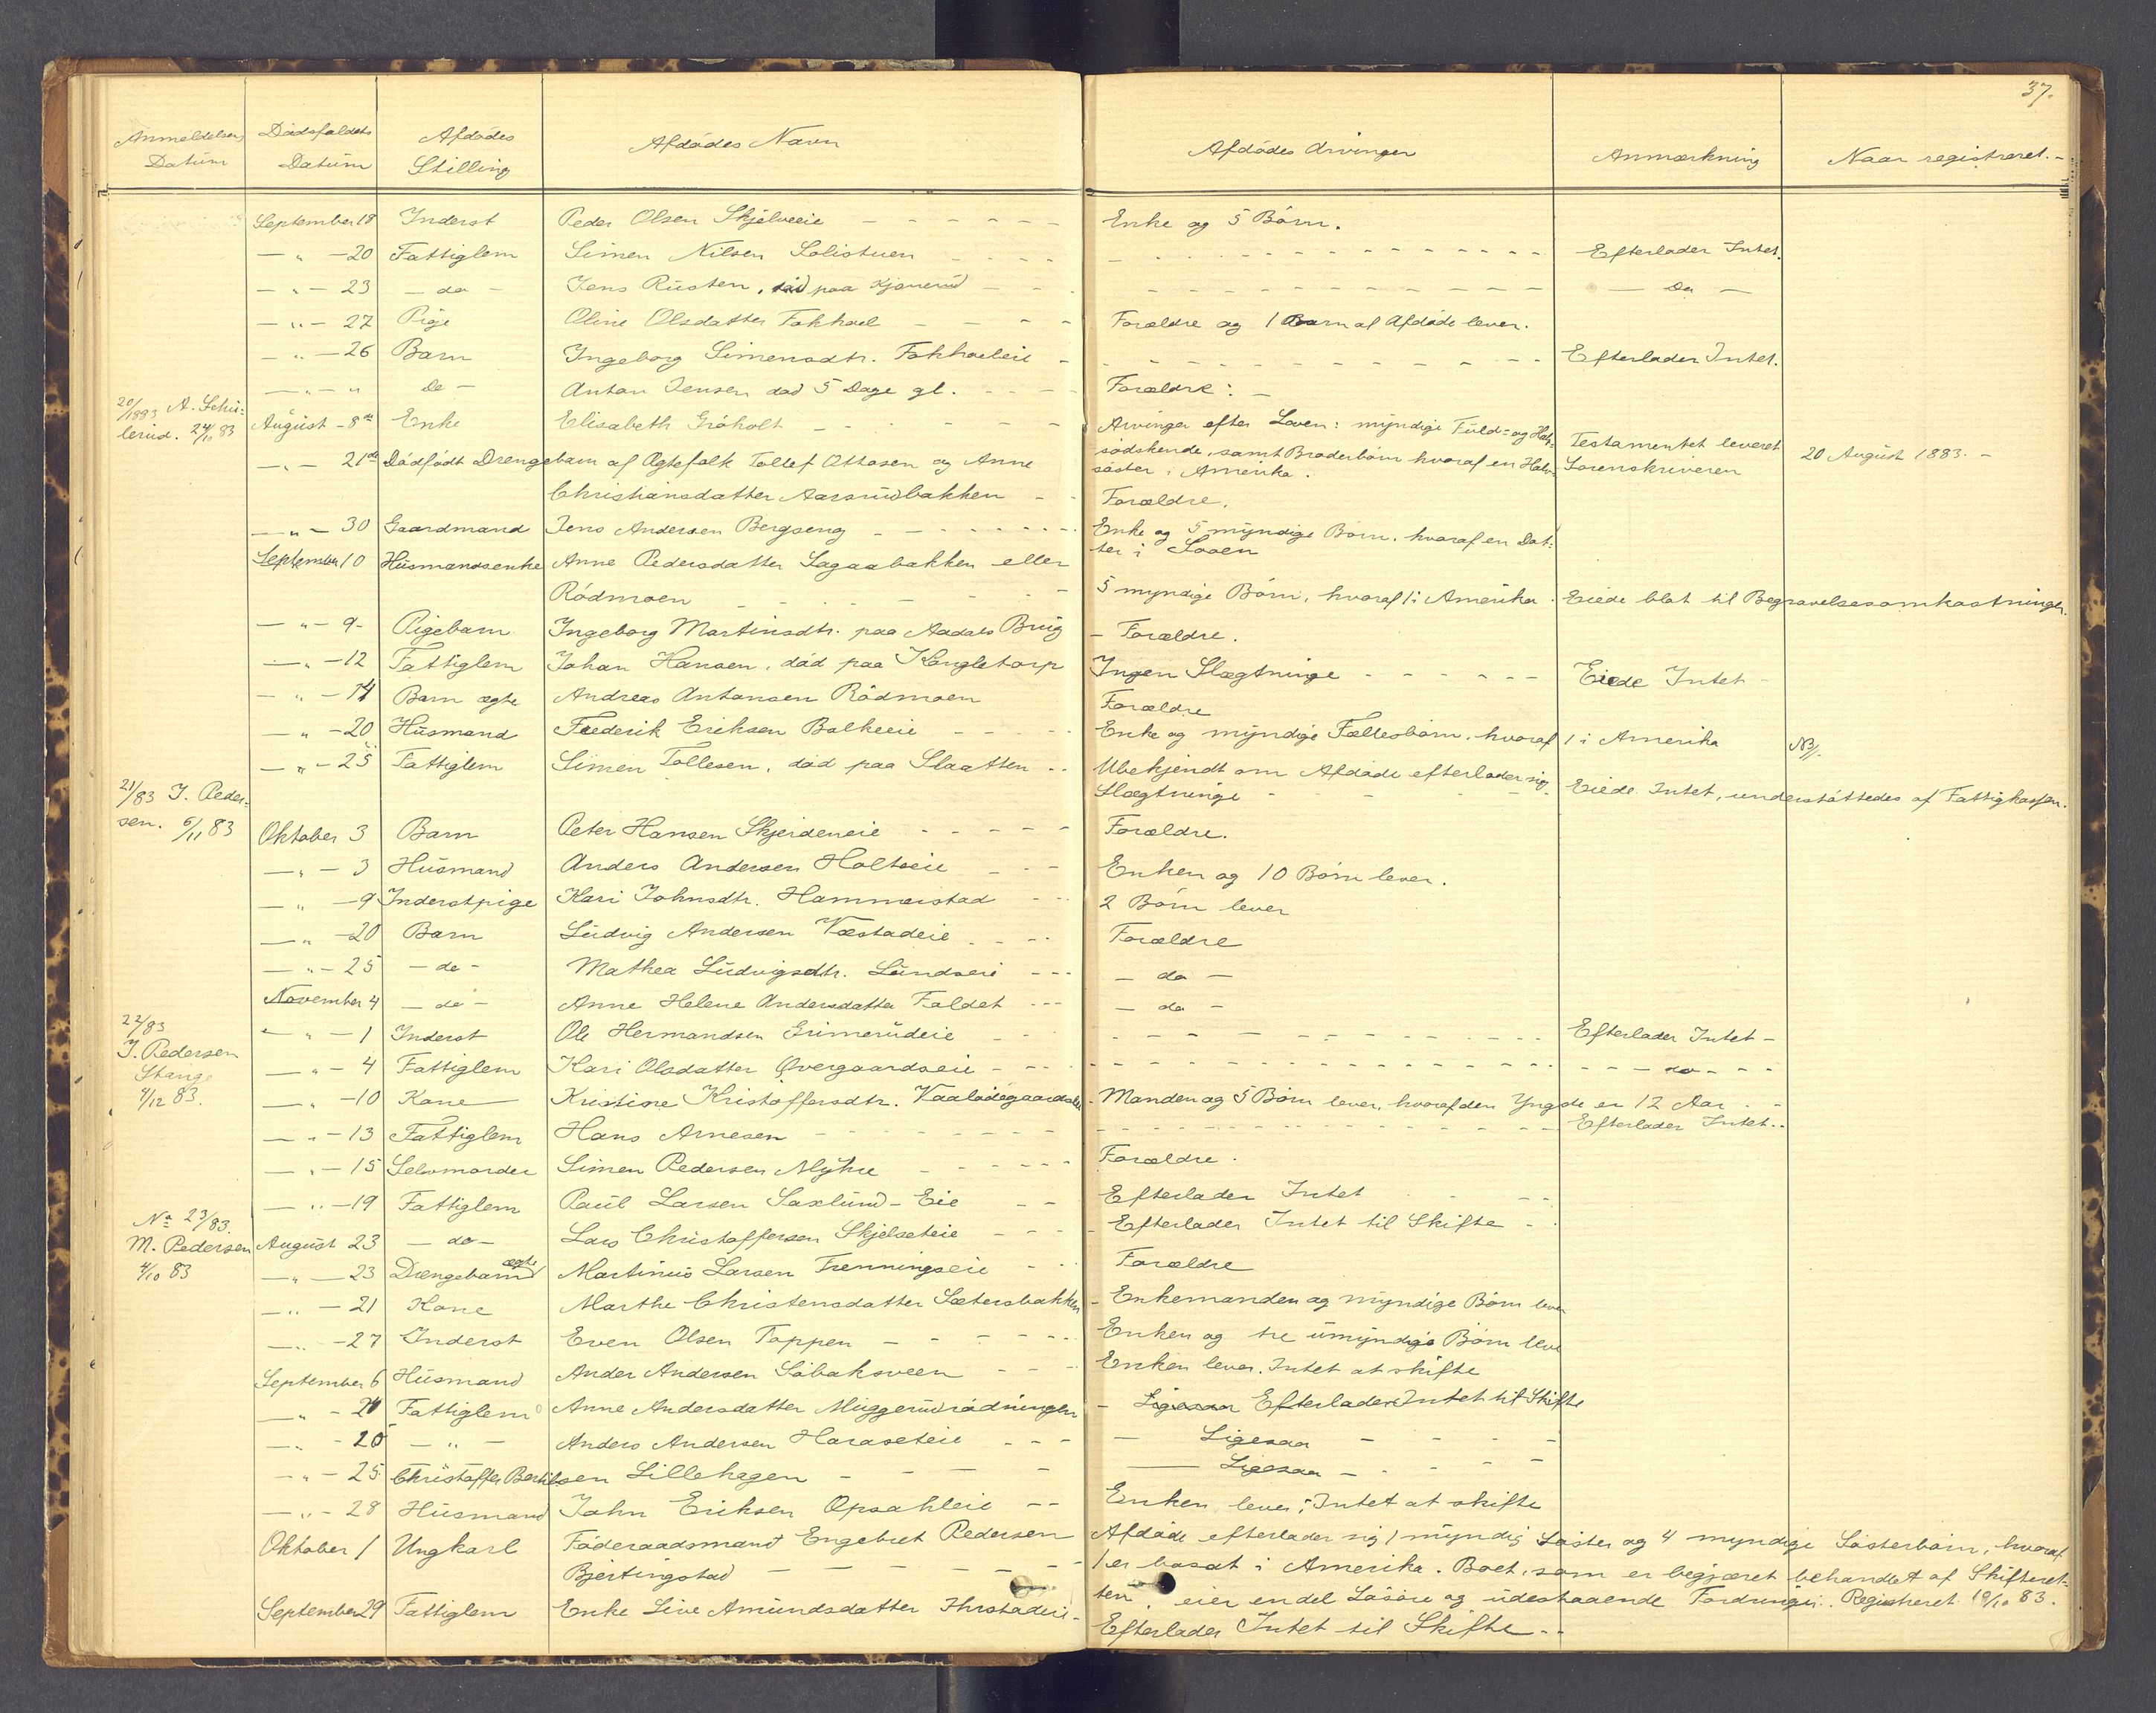 37.
Anmeldelsens Datum | Dødsfaldets Datum | Afdødes Stilling | Afdødes Navn | Afdødes Arvinger | Anmærkning | Naar registreret. -
September 18 Inderst Peder Olsen Skjelveeie - - - Enke og 5 Børn.
— „ — 20 Fattiglem Simen Nilsen Solistuen - - - Efterlader Intet.
— „ — 23 — do — Jens Rusten, død paa Kjonerud - - - Do —
— „ — 27 Pige Oline Olsdatter Fokhoel - - - Forældre og 1 Barn af Afdøde lever.
— „ — 26 Barn Ingeborg Simensdtr. Fokhoeleie - - - Efterlader Intet.
— „ — „ Do — Anton Jensen død 5 Dage gl. - - - Forældre: -
20/1883 A. Schu-
lerud. 24/10 83 August - 8de Enke Elisabeth Gröholt - - - Arvinger efter Loven: myndige Fuld= og Halv-
sødskende, samt Broderbørn hvoraf en Halv- søster i Amerika. Testamentet leveret Sorenskriveren 20 August 1883. -
— „ — 21de Dødfødt Drengebarn af Ægtefolk Tollef Ottosen og Anne
Christiansdatter Aarsrudbakken - - Forældre.
— „ — 30 Gaardmand Jens Andersen Bergseng - - - Enke og 5 myndige Børn, hvoraf en Dat-
ter i Looen
September 10 Husmandsenke Anne Pedersdatter Sagaabakken eller
Rødmoen - - - 5 myndige Børn, hvoraf 1 i Amerika. Eiede blot til Begravelsesomkostninger.
— „ — 9 - Pigebarn Ingeborg Martinsdtr. paa Aadals Brug - Forældre.
— „ — 12 Fattiglem Johan Hansen, død paa Kongletorp Ingen Slægtninge - - - Eiede Intet -
— „ — 14 Barn ægte Andreas Antonsen Rødmoen Forældre
— „ — 20 Husmand Frederik Eriksen Bolkeeie - - - Enke og myndige Fællesbørn, hvoraf 1 i Amerika NB/.
— „ — 25 Fattiglem Simen Tollesen, død paa Slaatten - - Ubekjendt om Afdøde efterlader sig
Slægtninge - - - Eiede Intet, understøttedes af Fattigkassen.
21/83 J. Peder-
sen. 6/11 83 Oktober 3 Barn Peter Hansen Skjerdeneie - - - Forældre.
— „ — 3 Husmand Anders Andersen Holtseie - - - Enken og 10 Børn lever.
— „ — 9 Inderstpige Kari Johnsdtr. Hammerstad - - - 2 Børn lever
— „ — 20 Barn Ludvig Andersen Væstadeie - - - Forældre
— „ — 25 — do — Mathea Ludvigsdtr. Lundseie - - - do —
November 4 — do — Anne Helene Andersdatter Faldet - - - do —
22/83
J. Pedersen
Stange
4/12 83.
— „ — 1 Inderst Ole Hermandsen Grimerudeie - - - Efterlader Intet -
— „ — 4 Fattiglem Kari Olsdatter Øvergaardseie - - - do - - -
— „ — 10 Kone Kristine Kristoffersdtr. - Manden og 5 Børn lever, hvoraf den Yngste er 12 Aar - -
— „ — 13 Fattiglem Hans Arnesen - - - Efterlader Intet..
— „ — 15 Selvmorder Simen Pedersen Myhre - - - Forældre.
— „ — 19 Fattiglem Paul Larsen Saxlund-Eie - - Efterlader Intet - - -
No 23/83.
M. Pedersen
4/10 83
August 23 — do — Lars Christoffersen Skjelseteie - - - Efterlader Intet til Skifte -
— „ — 23 Drengebarn ægte Martinus Larsen Frenningseie - - - Forældre
— „ — 21 Kone Marthe Christensdatter Sætersbakken - Enkemanden og myndige Børn lever
— „ — 27 Inderst Even Olsen Toppen - - - Enken og tre umyndige Børn leve
September 6 Husmand Ander Andersen Søbaksveen - - - Enken lever. Intet at skifte
— „ — 21 Fattiglem Anne Andersdatter Muggerudrødningen - Ligesaa Efterlader Intet til Skifte
— „ — 25 — „ — Anders Andersen Haraseteie - - - Ligesaa - - -
— „ — 25 Christoffer Bertilsen Lillehagen - - - Ligesaa - - -
— „ — 28 Husmand John Eriksen Opsahleie - - Enken lever; Intet at skifte
Oktober 1 Ungkarl Føderaadsmand Engebret Pedersen
Bjertingstad - - - Afdøde efterlader sig 1 myndig Søster og 4 myndige Søsterbørn, hvoraf
1 er bosat i Amerika. Boet, som er begjæret behandlet af Skifteret-
ten, eier endel Løsøre og udestaaende Fordringer. Registreret 19/10 83.
September 29 Fattiglem Enke Live Amundsdatter - Efterlader Intet til Skifte - -